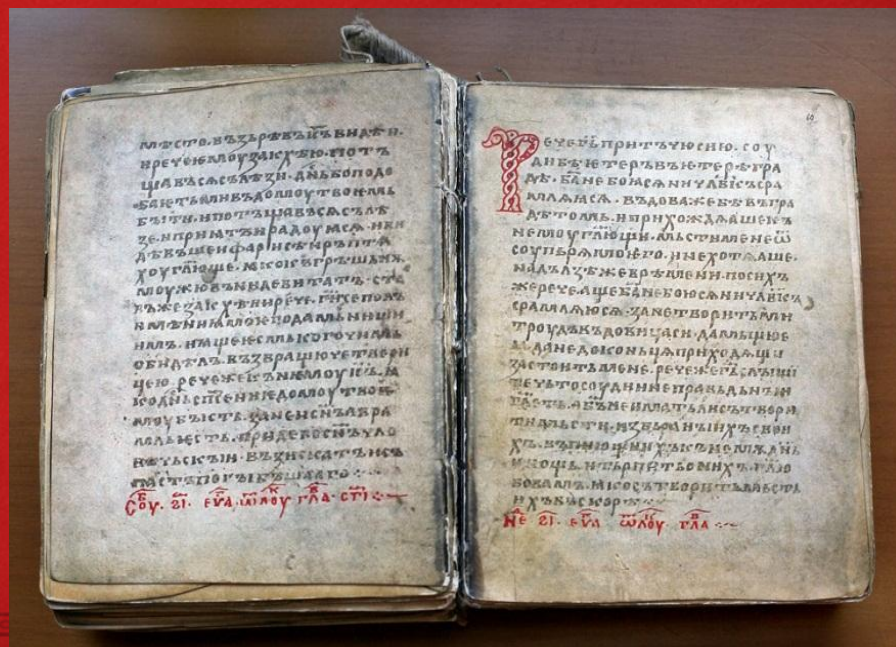 мѣсто. възьрѣвъ іс҃ъ видѣ и.
и рече ѥмоу закъхѣю. потъ
щавъ сѧ сълѣзи. дн҃ь бо подо
баѥтъ ми въ домоу твоѥмь
бꙑти. и потъщавъ сѧ сълѣ
зе. и приѩтъ и радоуѩсѧ. и ви
дѣвъше и фарисѣи ръпъта
хоу гл҃юще. ꙗко къ грѣшьнꙋ
моужю въниде витатъ. ста
въ же закъхѣи рече.
имѣниꙗ моѥго подамь нищи
имъ. и аще ѥсмь кого чимь
обидѣлъ. възвращю четвери
цею. рече же къ нѥмоу іс҃ъ. ꙗ
ко дьнь спс҃ениѥ домоу твоѥ
моу бꙑсть. зане и сꙑ сн҃ъ авра
амль ѥсть. приде бо сн҃ъ чло
вѣчьскꙑи. възискатъ и съ
пастъ погꙑбъшааго
Соу. ꙁ҃і. еѵа. ѿ лоу. гла. ст҃і
Рече г҃ь притъчю сию. соу
дии бѣ ѥтеръ въ ѥтерѣ гра
дѣ. б҃а не боꙗ сѧ ни чл҃вкъ сра
млꙗꙗ сѧ. въдова же бѣ въ гра
дѣ томь. и прихождааше къ
немоу гл҃ющи. мьсти мене ѿ
соупьрꙗ моѥго. и не хотѧаше.
на дълзѣ же врѣмени. по сихъ
же рече. аще б҃а не боюсѧ ни чл҃вкъ
срамлꙗюсѧ. зане творитъ ми
троудъ въдовица си. да мьщю ѥ
ꙗ да не до коньца приходѧщи
застоитъ мене. рече же г҃ь слꙑши
те чьто соудии неправьдьнꙑи
гл҃етъ. а б҃ъ не имать ли сътвори
ти мьсти. избьранꙑихъ свои
хъ. въпиющиихъ къ немꙋ дн҃ь
и нощь. и тьрпитъ о нихъ. гл҃ю
бо вамъ. ꙗко сътворитъ мьсть
ихъ въскорѣ
Не ꙁ҃і. еѵа ѿ лоу гла